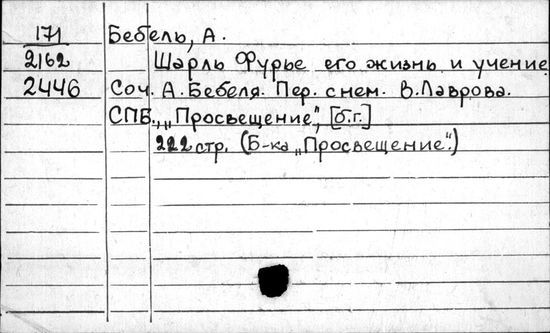 171 Бебель, А.
2162 Шарль Фурье его жизнь и учение
2446 Соч. А. Бебеля. Пер. с нем. В. Лаврова.
СПБ., „Просвещение", [б.г.]
222 стр. (Б-ка „Просвещение".)